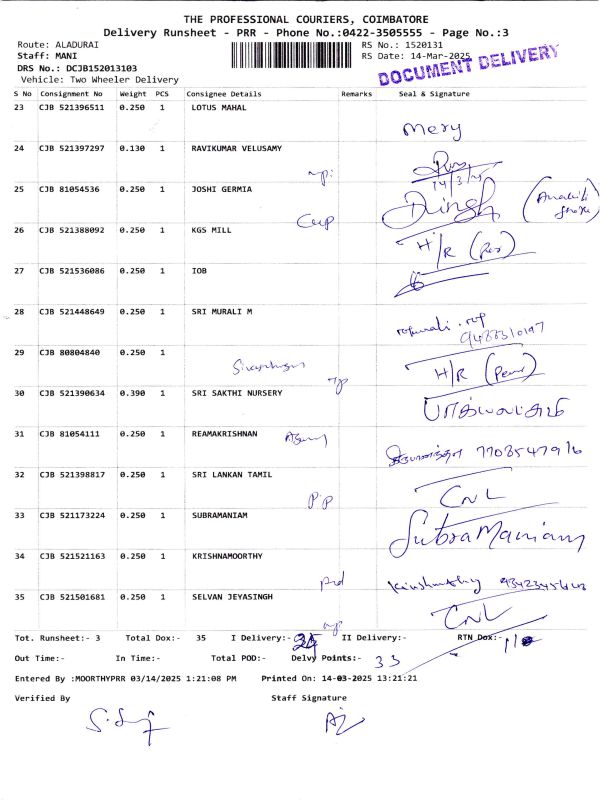 THE PROFESSIONAL COURIERS, COIMBATORE
Delivery Runsheet - PRR - Phone No.:0422-3505555 - Page No.:3
Route: ALADURAI
RS No.: 1520131
Staff: MANI
RS Date: 14-Mar-2025
DRS No.: DCJB152013103
DOCUMENT DELIVERY
Vehicle: Two Wheeler Delivery
S No Consignment No Weight PCS Consignee Details Remarks Seal & Signature
23 CJB 521396511 0.250 1 LOTUS MAHAL
Mery
24 CJB 521397297 0.130 1 RAVIKUMAR VELUSAMY
14/3/25
25 CJB 81054536 0.250 1 JOSHI GERMIA
26 CJB 521388092 0.250 1 KGS MILL
H/R
27 CJB 521536086 0.250 1 IOB
28 CJB 521448649 0.250 1 SRI MURALI M
29 CJB 80804840 0.250 1
H/R
30 CJB 521390634 0.390 1 SRI SAKTHI NURSERY
31 CJB 81054111 0.250 1 REAMAKRISHNAN
32 CJB 521398817 0.250 1 SRI LANKAN TAMIL
CNL
33 CJB 521173224 0.250 1 SUBRAMANIAM
SubraManiam
34 CJB 521521163 0.250 1 KRISHNAMOORTHY
35 CJB 521501681 0.250 1 SELVAN JEYASINGH
CNL
Tot. Runsheet:- 3 Total Dox:- 35 I Delivery:- II Delivery:- RTN Dox:-
Out Time:- In Time:- Total POD:- Delvy Points:- 33
Entered By :MOORTHYPRR 03/14/2025 1:21:08 PM Printed On: 14-03-2025 13:21:21
Verified By Staff Signature